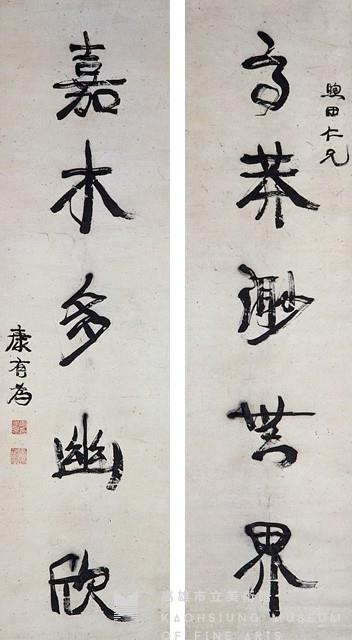 煦田仁兄
高莽渺無界
嘉木多幽欣
康有為
高雄市立美術館
KAOHSIUNG MUSEUM
OF FINE ARTS